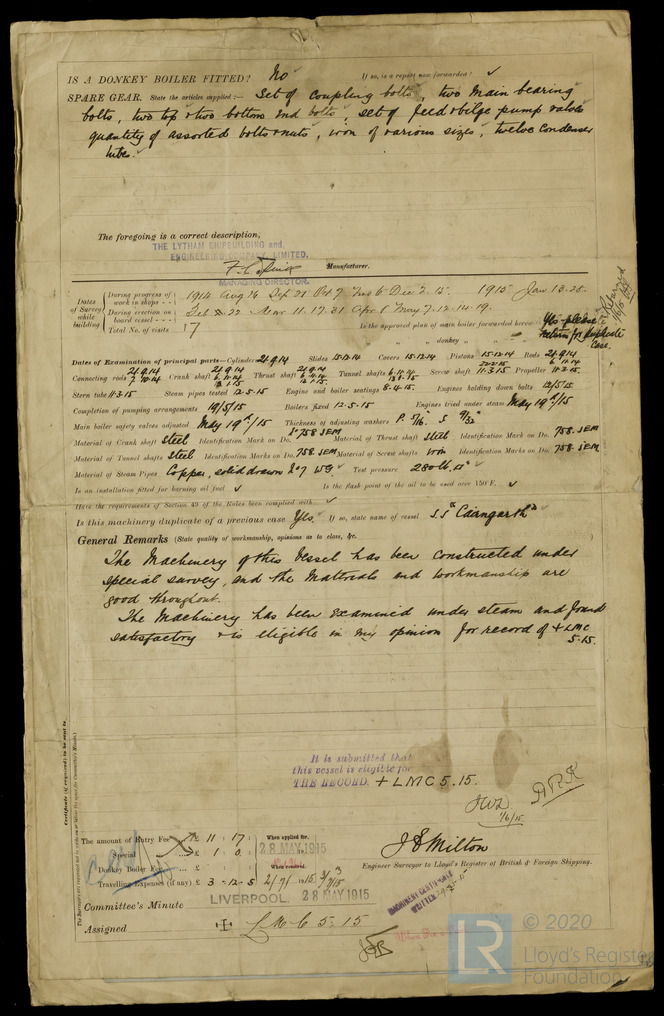 IS A DONKEY BOILER FITTED? No If so, is a report now forwarded?
SPARE GEAR. State the articles supplied:— Set of coupling bolts, two main bearing
bolts, two top & two bottom end bolts, set of feed & bilge pump valves
quantity of assorted bolts & nuts, iron of various sizes, twelve condenser
tubes.
The foregoing is a correct description,
THE LYTHAM SHIPBUILDING and
ENGINEERING COMPANY, LIMITED.
Manufacturer.
MANAGING DIRECTOR.
Dates of Survey while building
During progress of work in shops - - 1914 Aug Sep Oct 7 Nov 6 Dec 2. 15. 1915 Jan 13. 20.
During erection on board vessel - - - Feb 22 Mar 11. 17. 31 Apr 8 May 7. 12. 14. 19.
Total No. of visits 17
Is the approved plan of main boiler forwarded herewith Yes please
return for duplicate
Case.
" " " donkey " " "
Dates of Examination of principal parts—Cylinders 21.9.14 Slides 15.12.14 Covers 15.12.14 Pistons 15.12.14 Rods 21.9.14
Connecting rods 21.9.14 7.10.14 Crank shaft 21.9.14 Thrust shaft 21.9.14 Tunnel shafts Screw shaft 11.3.15 Propeller 11.3.15.
Stern tube 11.3.15 Steam pipes tested 12.5.15 Engine and boiler seatings 8.4.15. Engines holding down bolts 12/5/15
Completion of pumping arrangements 19/5/15 Boilers fixed 12.5.15 Engines tried under steam May 19th/15
Main boiler safety valves adjusted May 19th/15 Thickness of adjusting washers P. 5/16. S 9/32"
Material of Crank shaft Steel Identification Mark on Do. No 758 JEM Material of Thrust shaft Steel Identification Mark on Do. 758. JEM
Material of Tunnel shafts Steel Identification Marks on Do. 758. JEM Material of Screw shafts Iron Identification Marks on Do. 758 JEM
Material of Steam Pipes Copper, solid drawn No 7 WG Test pressure 280 lb. □"
Is an installation fitted for burning oil fuel Is the flash point of the oil to be used over 150°F.
Have the requirements of Section 49 of the Rules been complied with
Is this machinery duplicate of a previous case Yes. If so, state name of vessel SS "Cairngarth"
General Remarks (State quality of workmanship, opinions as to class, &c.
The Machinery of this Vessel has been constructed under
special survey, and the Materials and workmanship are
good throughout.
The Machinery has been examined under steam and found
satisfactory & is eligible in my opinion for record of +LMC
5.15.
It is submitted that
this vessel is eligible for
THE RECORD. + LMC 5.15.
1/6/15
Certificate (if required) to be sent to
The amount of Entry Fee £ 11 : 17 :
Special £ 1 : 0 :
Donkey Boiler Fee £
Travelling Expenses (if any) £ 3 - 12 - 5
When applied for,
28 MAY 1915
When received,
J E Milton
Engineer Surveyor to Lloyd's Register of British & Foreign Shipping.
Committee's Minute LIVERPOOL. 28 MAY 1915
MACHINERY CERTIFICATE
WRITTEN
Assigned + L M C 5.15
© 2020
LR
Lloyd's Register
Foundation